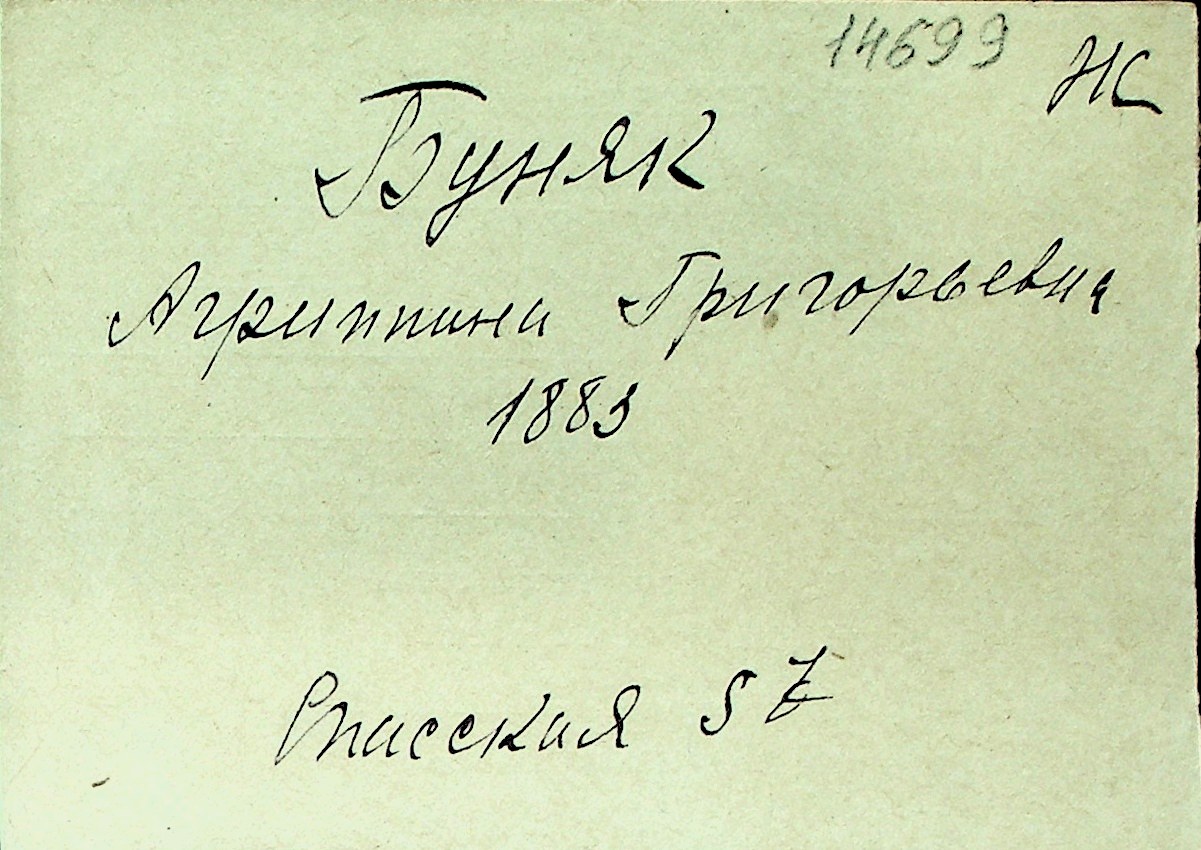 14699 НС
Буняк
Агриппина Григорьевна
1883
Спасская 57